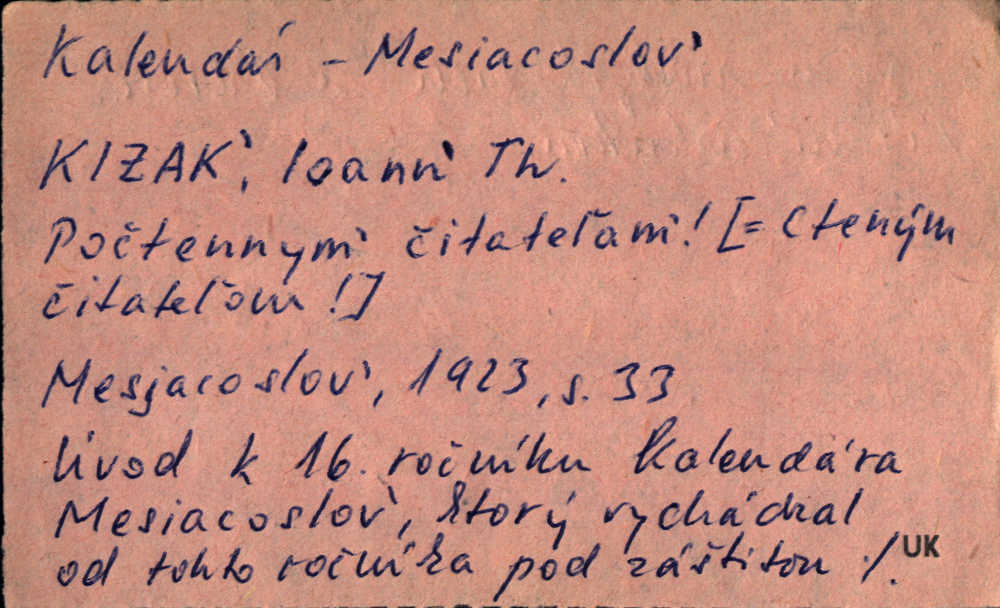 Kalendár - Mesiacoslov`
KIZAK`, Ioann` Th.
Počtennym` čitateľam`! [= Cteným
čitateľom!]
Mesjacoslov`, 1923, s. 33
Úvod k 16. ročníku Kalendára
Mesiacoslov`, ktorý vychádzal
od tohto ročníka pod záštitou ./.
UK